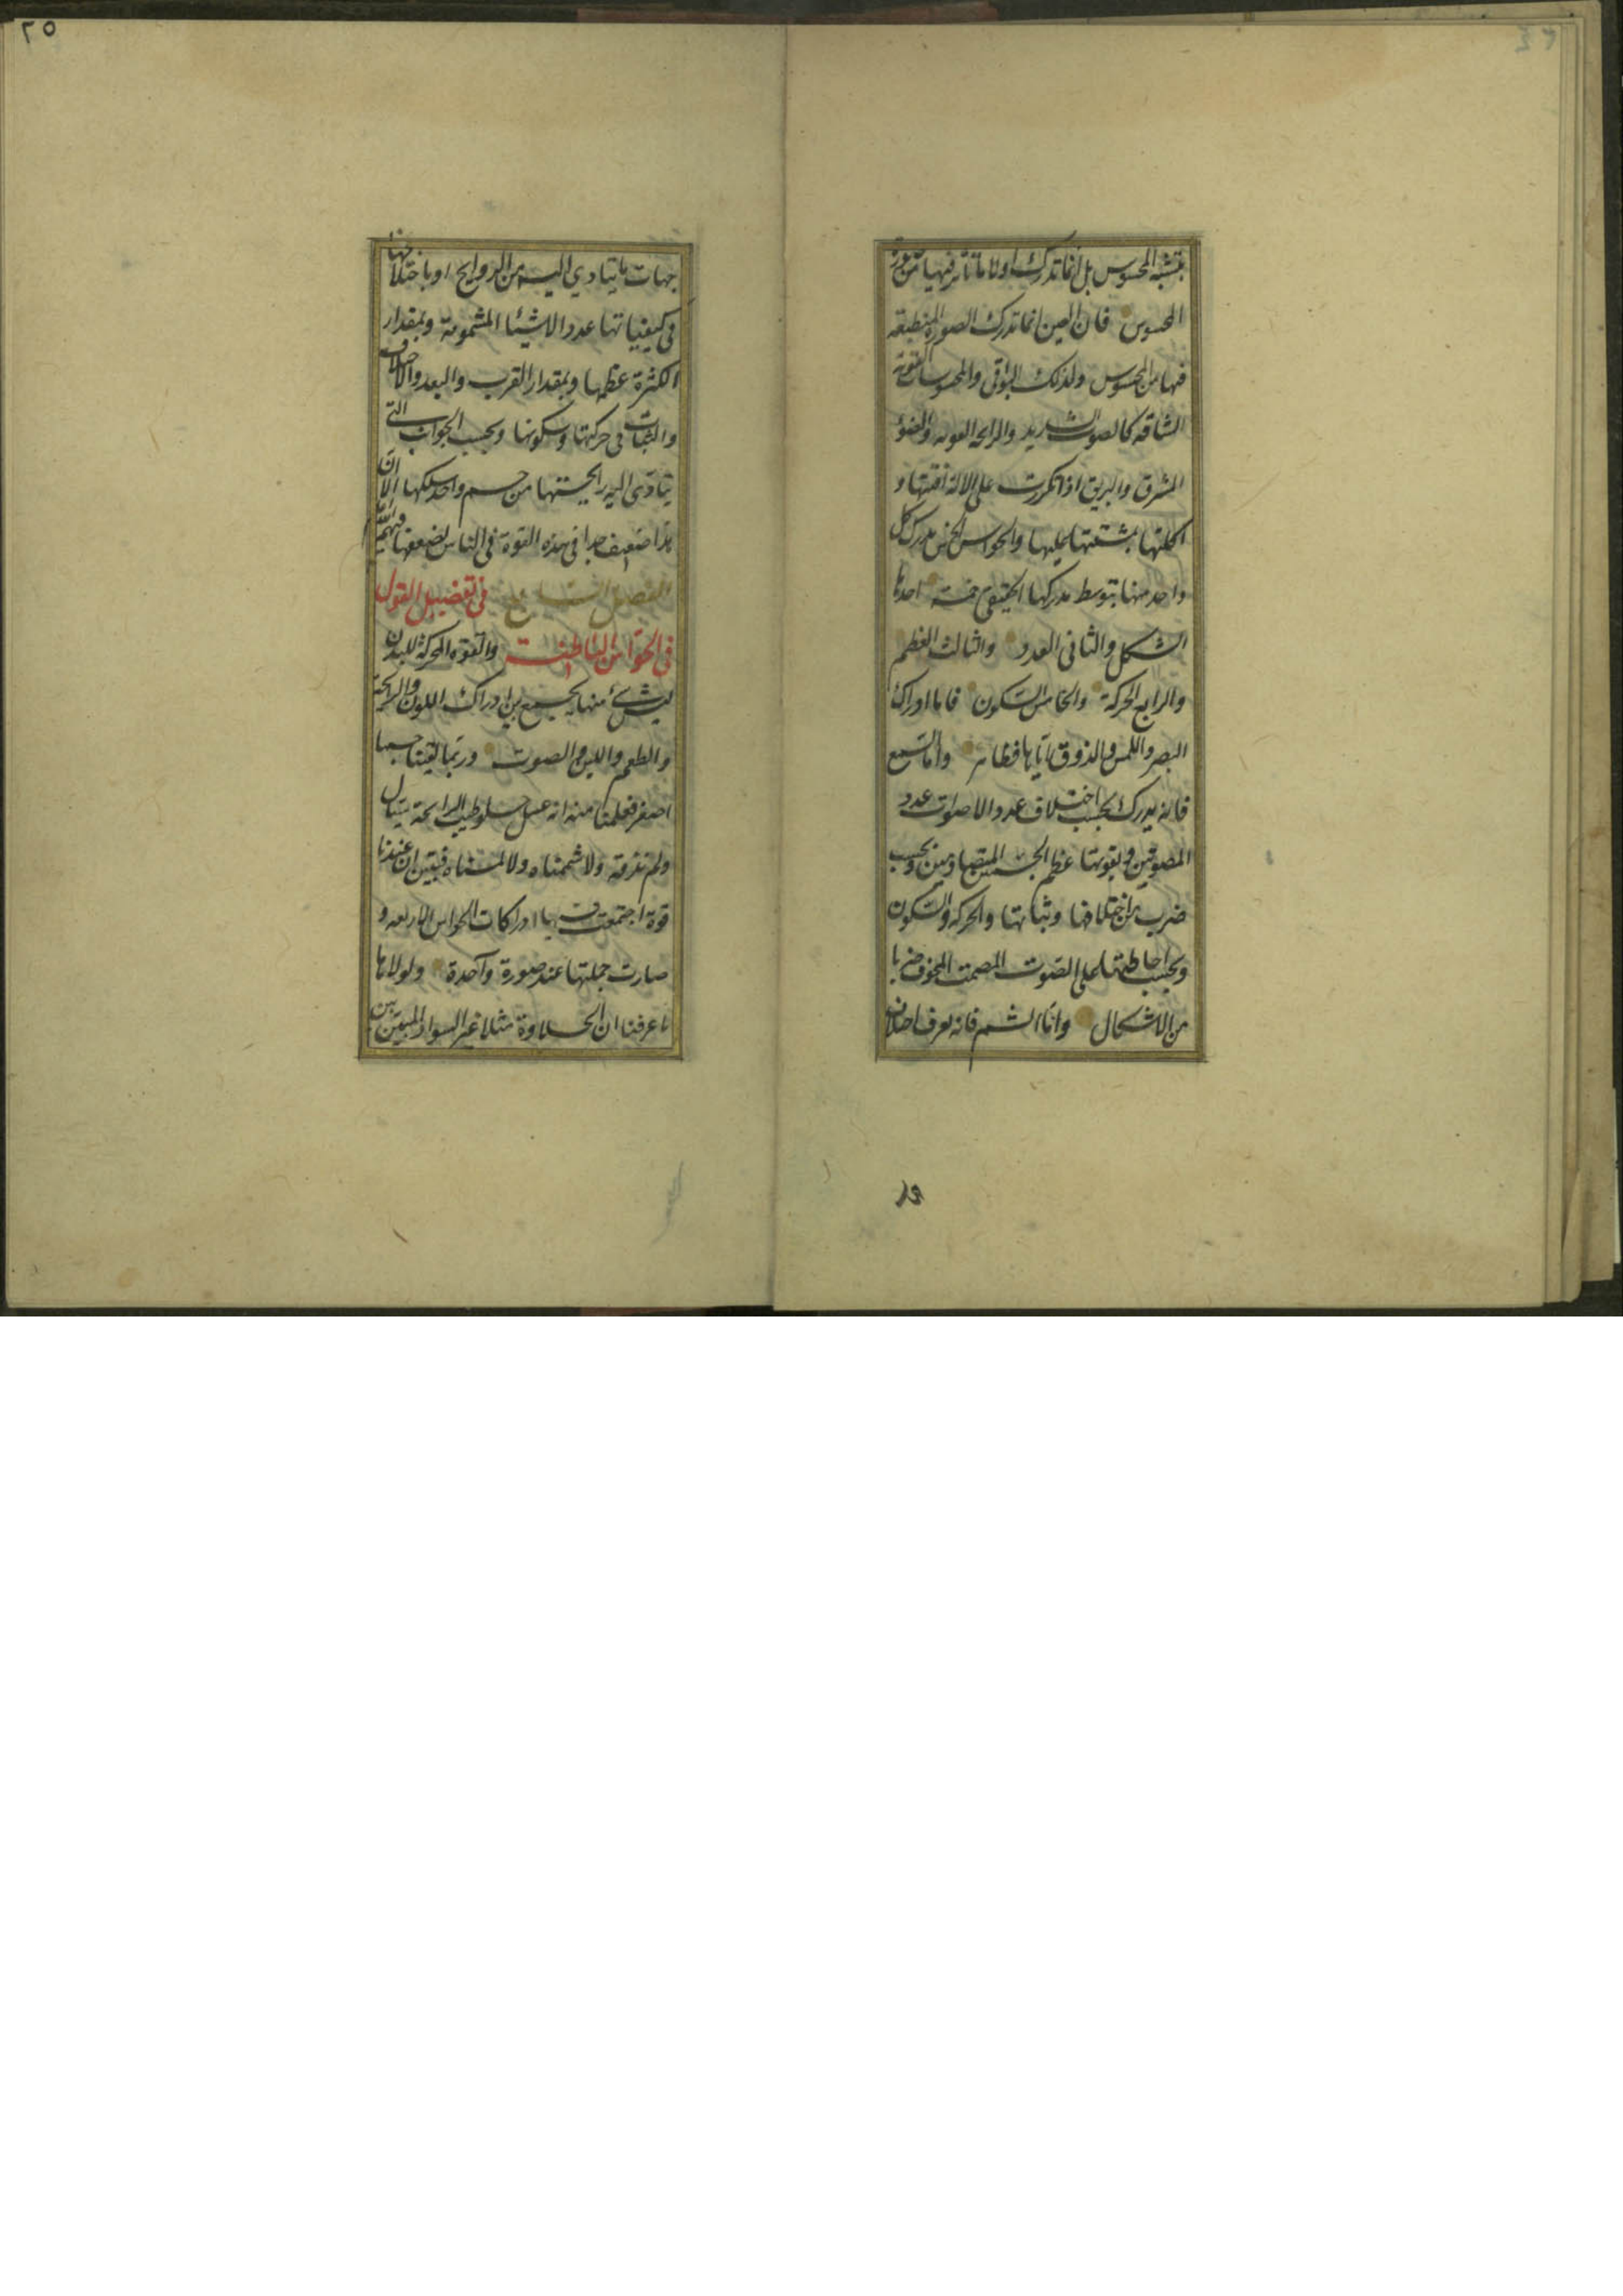 بتشبه المحسوس بل انما تدرك اولا ما تأثر فيها من صورة
المحسوس فان العين انما تدرك الصورة المنطبعة
فيها من المحسوس ولذلك البواقى والمحسوسات القوية
الشاقة كالصوت الشديد والرايحة القوية والضوء
المشرق والبريق اذا تكررت على الالة افسدتها و
اكلتها بمشقتها عليها والحواس الخمس يدرك كل
واحد منها بتوسط مدركها الحقيقى خمسة احدها
الشكل والثانى العدد والثالث العظم
والرابع الحركة والخامس السكون فاما ادراك
البصر واللمس والذوق اياها فظاهر واما السمع
فانه يدرك بحسب اختلاف عدد الاصوات عدد
المصوتين وبقوتها عظم الجسمين المتصادمين وبحسب
ضرب من اختلافها وثباتها والحركة والسكون
وبحسب احاطتها على الصوت المصمت المجوف ضربا
من الاشكال واما الشم فانه يعرف باختلاف
٢٥
جهات ما يتادى اليه من الروايح او باختلافها
فى كيفياتها عدد الاشيا المشمومة وبمقدار
الكثرة عظمها وبمقدار القرب والبعد والاختلاف
والثبات فى حركتها وسكونها وبحسب الجوانب التى
يتادى اليه رايحتها من جسم واحد شكلها الا ان
هذا ضعيف جدا فى هذه القوة فى الناس لضعفها فيهم
الفصل السابع فى تفصيل القول
فى الحواس الباطنة والقوة المحركة للبدن
ليس شئ منها يجمع بين ادراك اللون والرايحة
والطعم واللين والصوت وربما لقينا جسما
اصفر فعلمنا منه انه عسل حلو طيب الرايحة سيال
ولم نذقه ولا شممناه ولا لمسناه فبيّن ان عندنا
قوة اجتمعت فيها ادراكات الحواس الاربعة و
صارت جملتها عند صورة واحدة ولولاها
ما عرفنا ان الحلاوة مثلا غير السواد